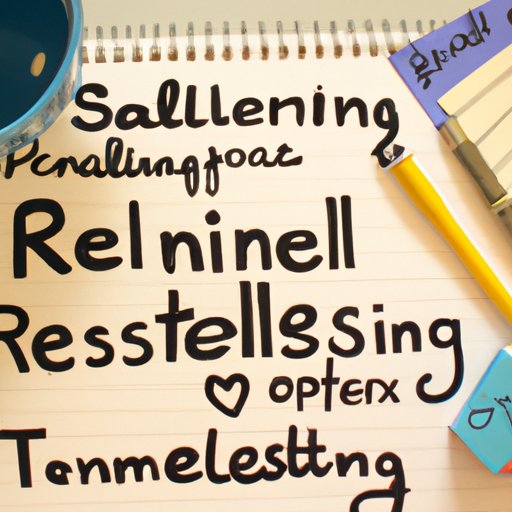 Sallening
Pcnalingfoat
Relninell
Resstellssing
optex
Tenmelesttng